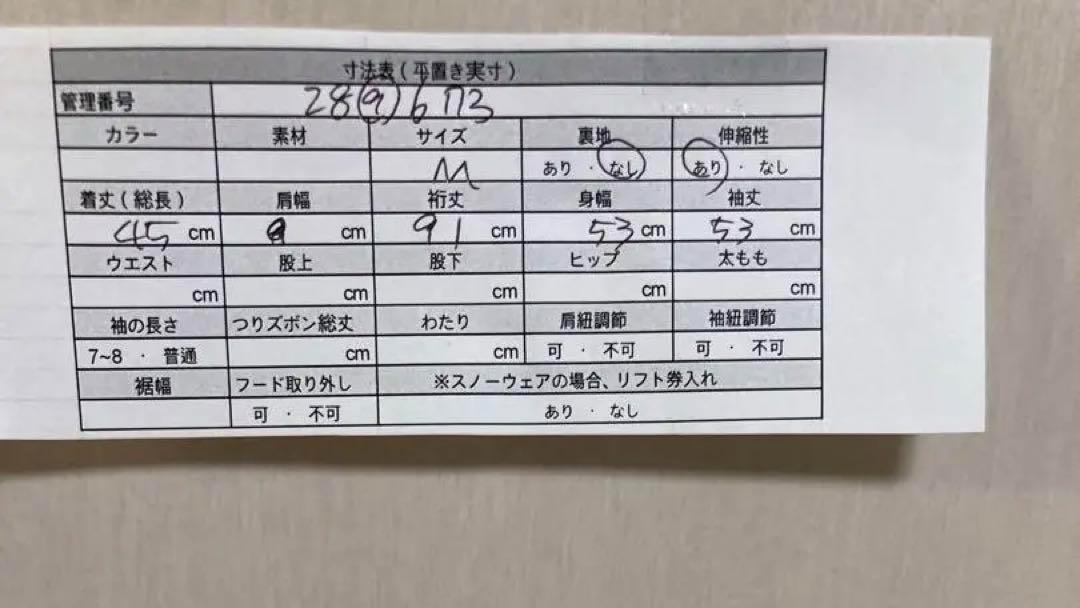 寸法表(平置き実寸)
管理番号 28(a)6 173
カラー 素材 サイズ 裏地 伸縮性
M あり ・ なし あり ・ なし
着丈(総長) 肩幅 裄丈 身幅 袖丈
45 cm cm 91 cm 53 cm 53 cm
ウエスト 股上 股下 ヒップ 太もも
cm cm cm cm cm
袖の長さ つりズボン総丈 わたり 肩紐調節 袖紐調節
7~8 ・ 普通 cm cm 可 ・ 不可 可 ・ 不可
裾幅 フード取り外し ※スノーウェアの場合、リフト券入れ
可 ・ 不可 あり ・ なし